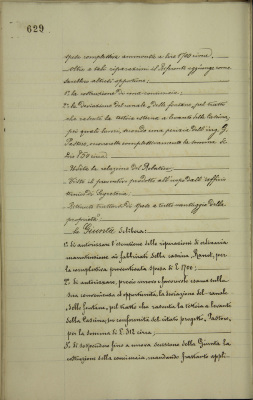 629
spesa complessiva ammonta a lire 1700 circa;
Oltre a tali riparazioni il Referente aggiunge come
sarebbe altresì opportuno:
1° la costruzione di una concimaia;
2° la deviazione del canale delle fontane, pel tratto
che rasenta la testa a levante della Cascina,
pei quali lavori, secondo una perizia dell'ing. G.
Pastore, occorrerebbe complessivamente la somma di
lire 850 circa;
Udita la relazione del Relatore;
Visto il preventivo prodotto all'uopo dall'ufficio
tecnico di Segreteria;
Ritenuto trattarsi di spese a tutto vantaggio della
proprietà;
La Giunta delibera:
1° di autorizzare l'esecuzione delle riparazioni di
manutenzione ai fabbricati della cascina, per
la complessiva preventivata spesa di £ 1700;
2° di autorizzare, previo nuovo e favorevole esame sulla
sua convenienza ed opportunità, la deviazione del canale
delle fontane, pel tratto che rasenta la testa a levante
della Cascina, in conformità del citato progetto Pastore,
per la somma di £ 312 circa;
3° di sospendere fino a nuova decisione della Giunta la
costruzione della concimaia, mandando frattanto appli-